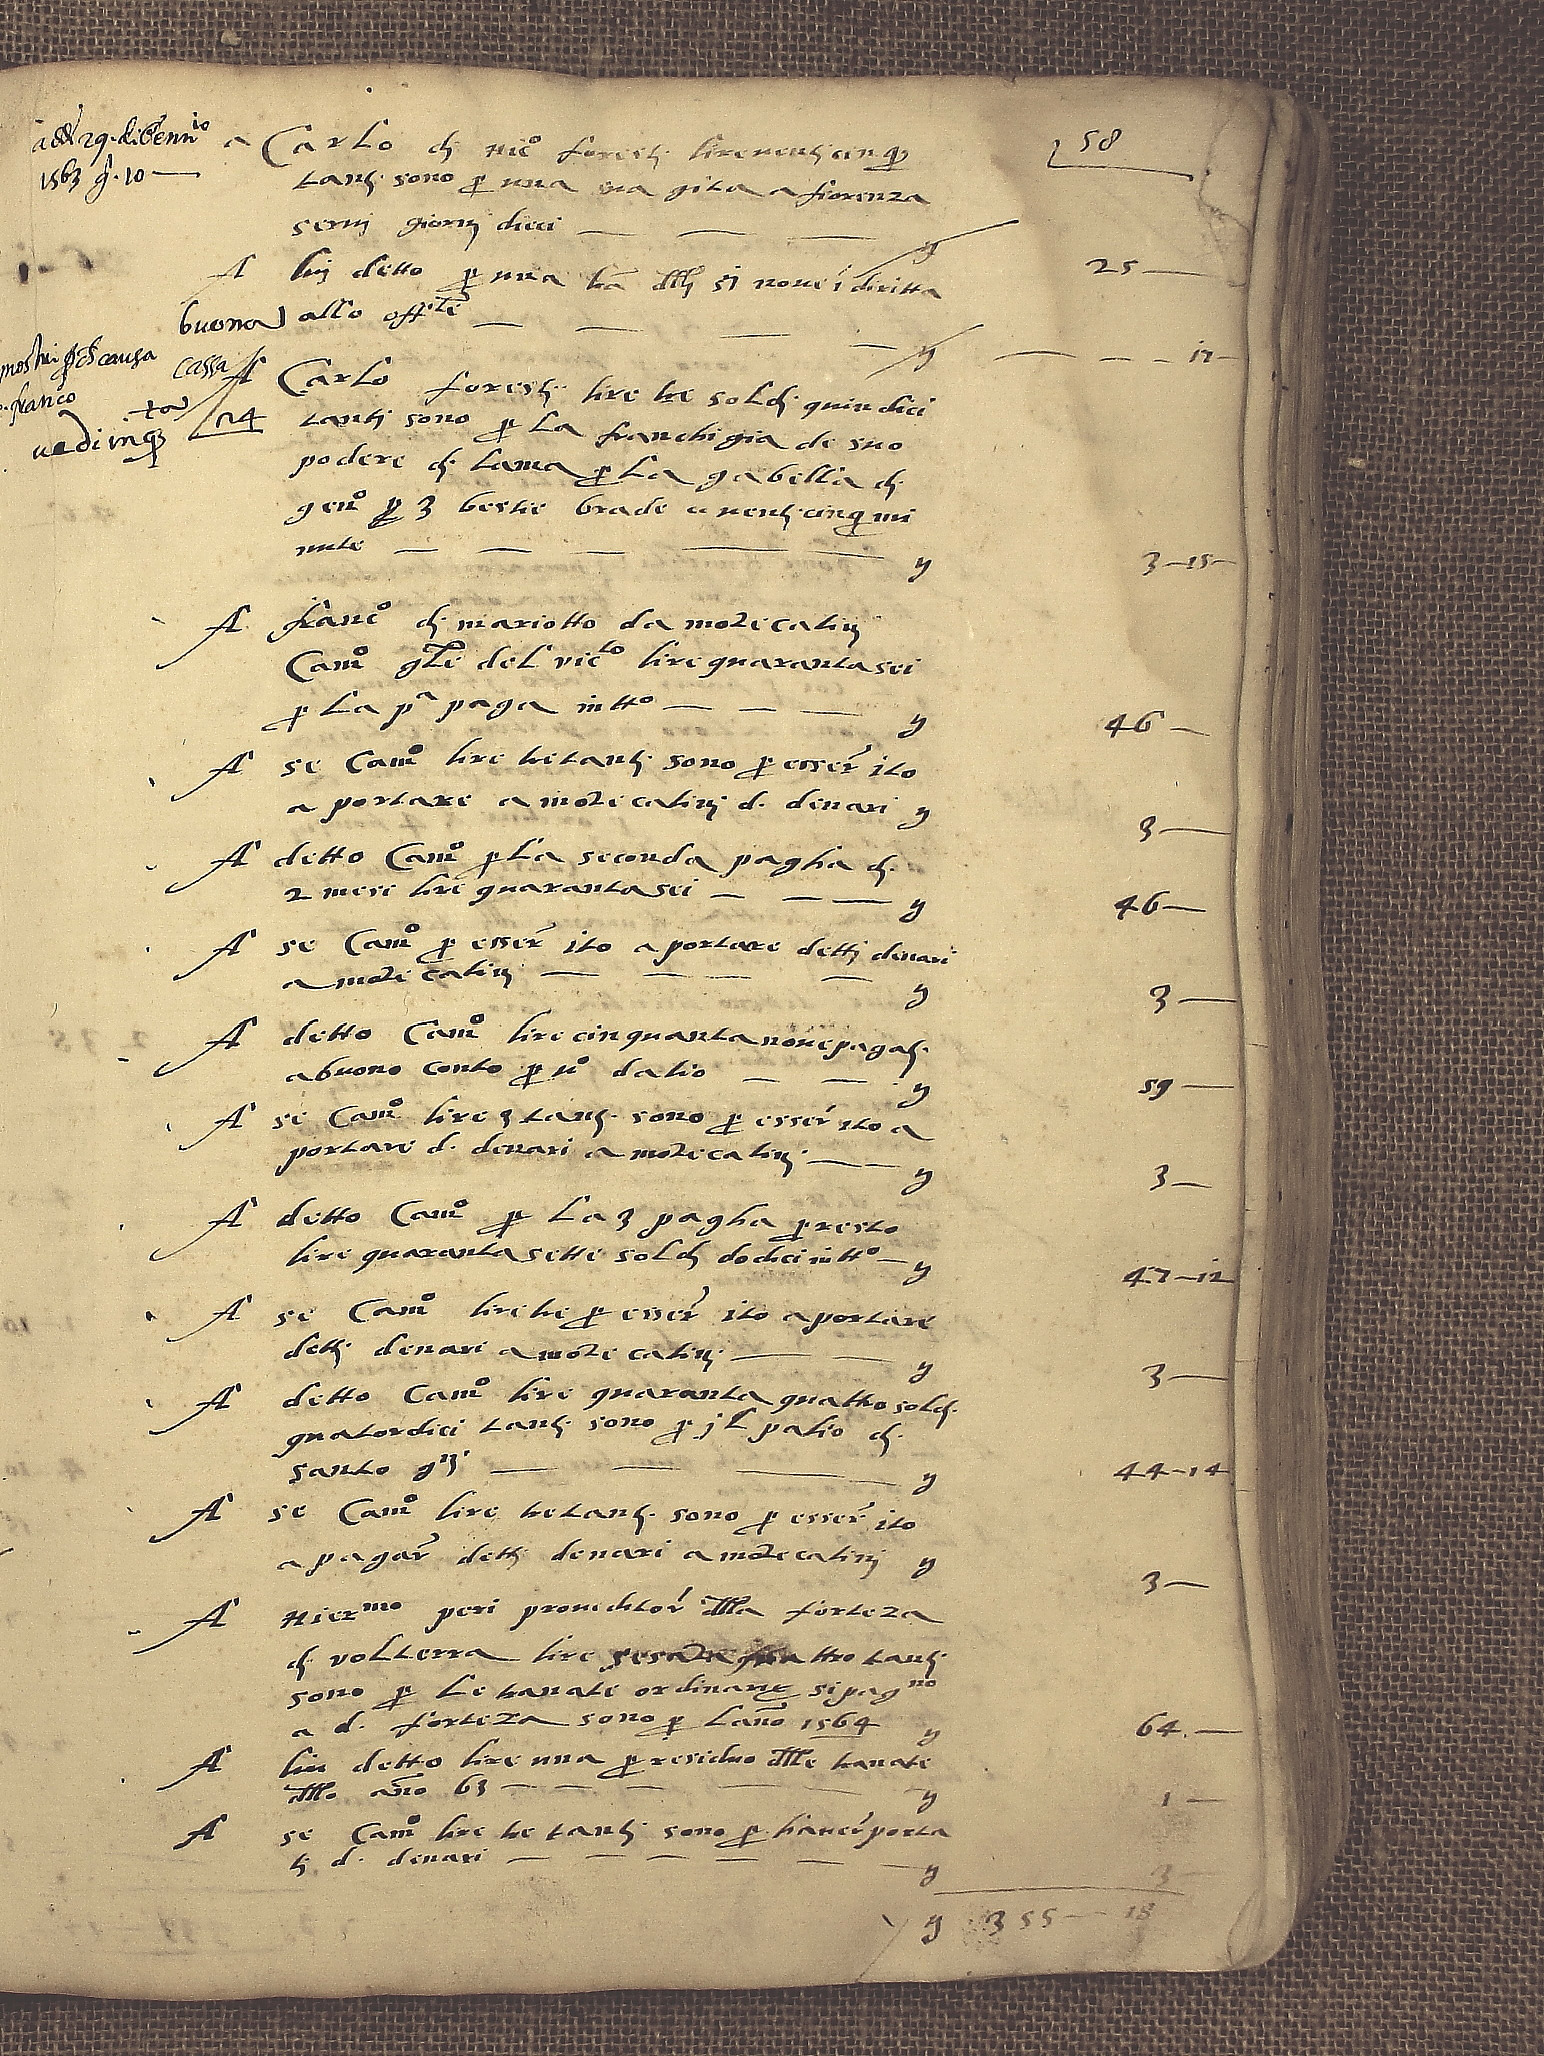 58
addi 29 di Genn.io
1563 g. 10 —
A Carlo di Nic.o foresti lire venticinq
tanti sono p una sua gita a fiorenza
servj giornj dieci — — — y 25 —
A luj detto p una diritta
buona allo off.le — — — — y — — — 17 —
causa
franco
cassa
A Carlo foresti lire tre soldi quindici
tanti sono p La franchigia de suo
podere di Lama p La gabella di
gen.o p 3 bestie brade e venticinq mi
nute — — — — — y 3—15—
A franc.o di mariotto da motecatinj
Cam.o g.le del vic.to lire quaranta sei
p La p.a paga in tt.o — — — y 46 —
A se Cam.o lire tre tanti sono p esser ito
a portare a motecatinj d. denari y 3 —
A detto Cam.o p La seconda pagha di
2 mesi lire quaranta sei — — — y 46 —
A se Cam.o p esser ito a portare detti denari
a motecatinj — — — — y 3 —
A detto Cam.o lire cinquanta nove pagati
a buono conto p datio — — y 59 —
A se Cam.o lire 3 tanti sono p esser ito a
portare d. denari a motecatinj — — y 3 —
A detto Cam.o p La 3 pagha p resto
lire quaranta sette soldi dodici in tt.o — y 47—12
A se Cam.o lire tre p esser ito a portare
detti denari a motecatinj — — y 3 —
A detto Cam.o lire quaranta quattro soldi
quatordici tanti sono p jl palio di
santo — — — y 44—14
A se Cam.o lire tre tanti sono p esser ito
a pagar detti denari a motecatinj y 3 —
A Hier.mo peri proveditor dlla forteza
di volterra lire sesata quattro tanti
sono p Le tanate ordinarie si pag.no
a d. forteza sono p Lano 1564 y 64. —
A luj detto lire una p residuo dlle tanate
dllo ano 63 — — — — y 1 —
A se Cam.o lire tre tanti sono p haver porta
ti d. denari — — — — — y 3 —
y 355 — 18